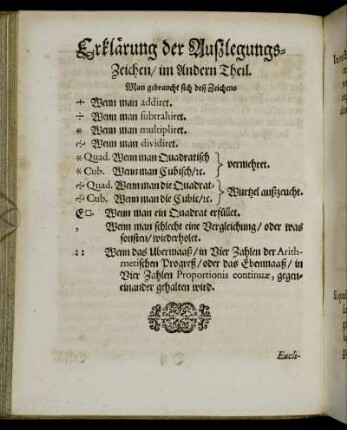 Erklärung der Außlegungs-
Zeichen/ im Andern Theil.
Man gebraucht sich deß Zeichens
+ Wenn man addiret.
÷ Wenn man subtrahiret.
* Wenn man multipliret.
Wenn man dividiret.
* Quad. Wenn man Quadratisch
* Cub. Wenn man Cubisch/ ꝛc. } vermehret.
Quad. Wenn man die Quadrat-
Cub. Wenn man die Cubic/ ꝛc. } Wurtzel außzeucht.
E□. Wenn man ein Quadrat erfüllet.
, Wenn man schlecht eine Vergleichung/ oder was
sonsten/ wiederholet.
:: Wenn das Ubermaaß/ in Vier Zahlen der Arith-
metischen Progreß/ oder das Ebenmaaß/ in
Vier Zahlen Proportionis continuæ, gegen
einander gehalten wird.
Eucli-